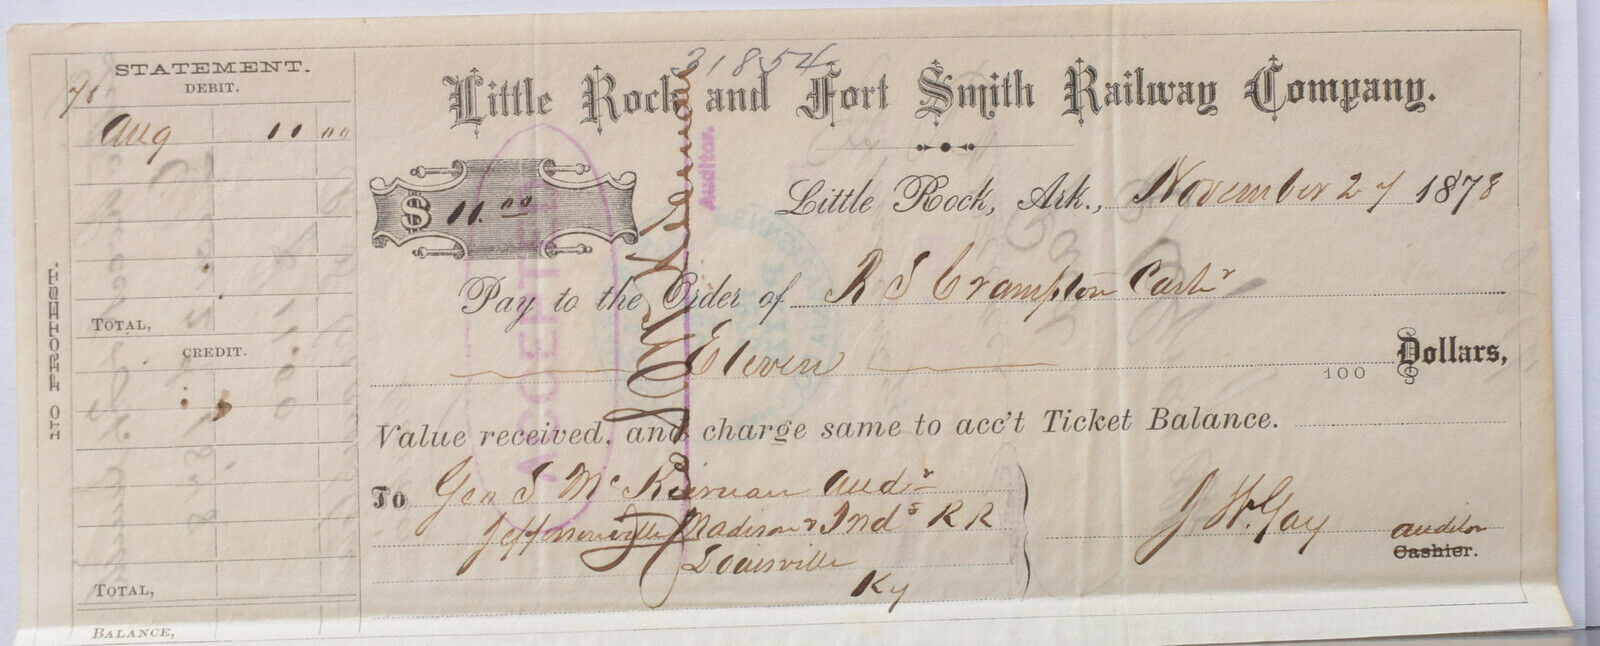 NO PROTEST.
STATEMENT.
DEBIT.
78
Aug 11 00
TOTAL,
CREDIT.
TOTAL,
BALANCE,
31854
Little Rock and Fort Smith Railway Company.
$ 11.00
Little Rock, Ark., November 27 1878
Pay to the Order of R S Crampton Cashr
Eleven 100 Dollars,
Value received, and charge same to acc't Ticket Balance.
To Geo S McKiernan Audr
Jeffersonville Madison & Inds RR
Louisville
Ky
J W. Gay auditor
Cashier.
ACCEPTED
Auditor.